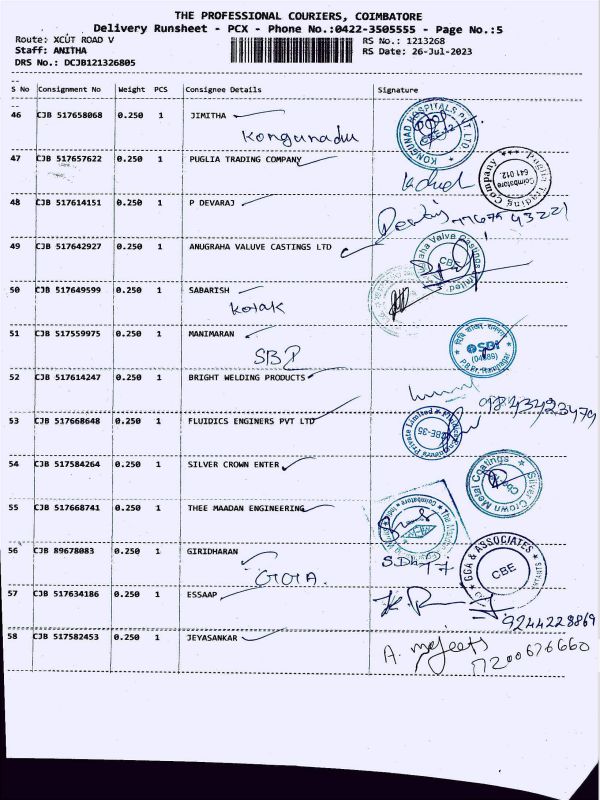 THE PROFESSIONAL COURIERS, COIMBATORE
Delivery Runsheet - PCX - Phone No.:0422-3505555 - Page No.:5
Route: XCUT ROAD V RS No.: 1213268
Staff: ANITHA RS Date: 26-Jul-2023
DRS No.: DCJB121326805
S No Consignment No Weight PCS Consignee Details Signature
46 CJB 517658068 0.250 1 JIMITHA
Kongunadu
KONGUNAD HOSPITALS PVT. LTD
CBE-12
47 CJB 517657622 0.250 1 PUGLIA TRADING COMPANY
Puglia Trading Company
Coimbatore
641 012.
48 CJB 517614151 0.250 1 P DEVARAJ
49 CJB 517642927 0.250 1 ANUGRAHA VALUVE CASTINGS LTD
Valve Castings Limited
CBE
50 CJB 517649599 0.250 1 SABARISH
kotak
51 CJB 517559975 0.250 1 MANIMARAN
SBI
SBI
52 CJB 517614247 0.250 1 BRIGHT WELDING PRODUCTS
9843423479
53 CJB 517668648 0.250 1 FLUIDICS ENGINERS PVT LTD
Private Limited
CBE-35
54 CJB 517584264 0.250 1 SILVER CROWN ENTER
Silver Crown Metal Coatings
CBE
55 CJB 517668741 0.250 1 THEE MAADAN ENGINEERING
56 CJB 89678083 0.250 1 GIRIDHARAN
GGA & ASSOCIATES
CBE
57 CJB 517634186 0.250 1 ESSAAP
9244228869
58 CJB 517582453 0.250 1 JEYASANKAR
7200676660